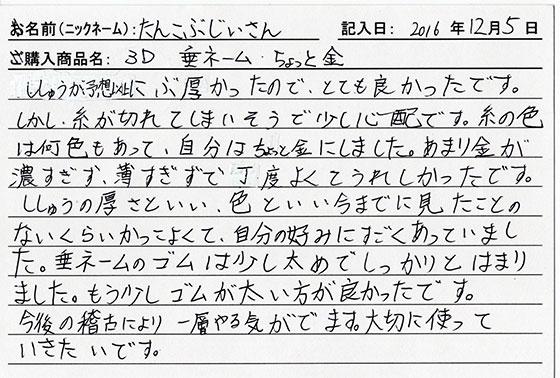 お名前(ニックネーム):たんこぶじいさん 記入日: 2016 年 12月 5 日
ご購入商品名: 3D 垂ネーム・ちょっと金
ししゅうが予想以上に ぶ厚かったので、とても良かったです。
しかし、糸が切れてしまいそうで少し心配です。糸の色
は何色もあって、自分はちょっと金にしました。あまり金が
濃すぎず、薄すぎずで丁度よくてうれしかったです。
ししゅうの厚さといい、色といい今までに見たことの
ないくらいかっこよくて、自分の好みにすごくあっていまし
た。垂ネームのゴムは少し太めでしっかりとはまり
ました。もう少しゴムが太い方が良かったです。
今後の稽古により一層やる気がでます。大切に使って
いきたいです。